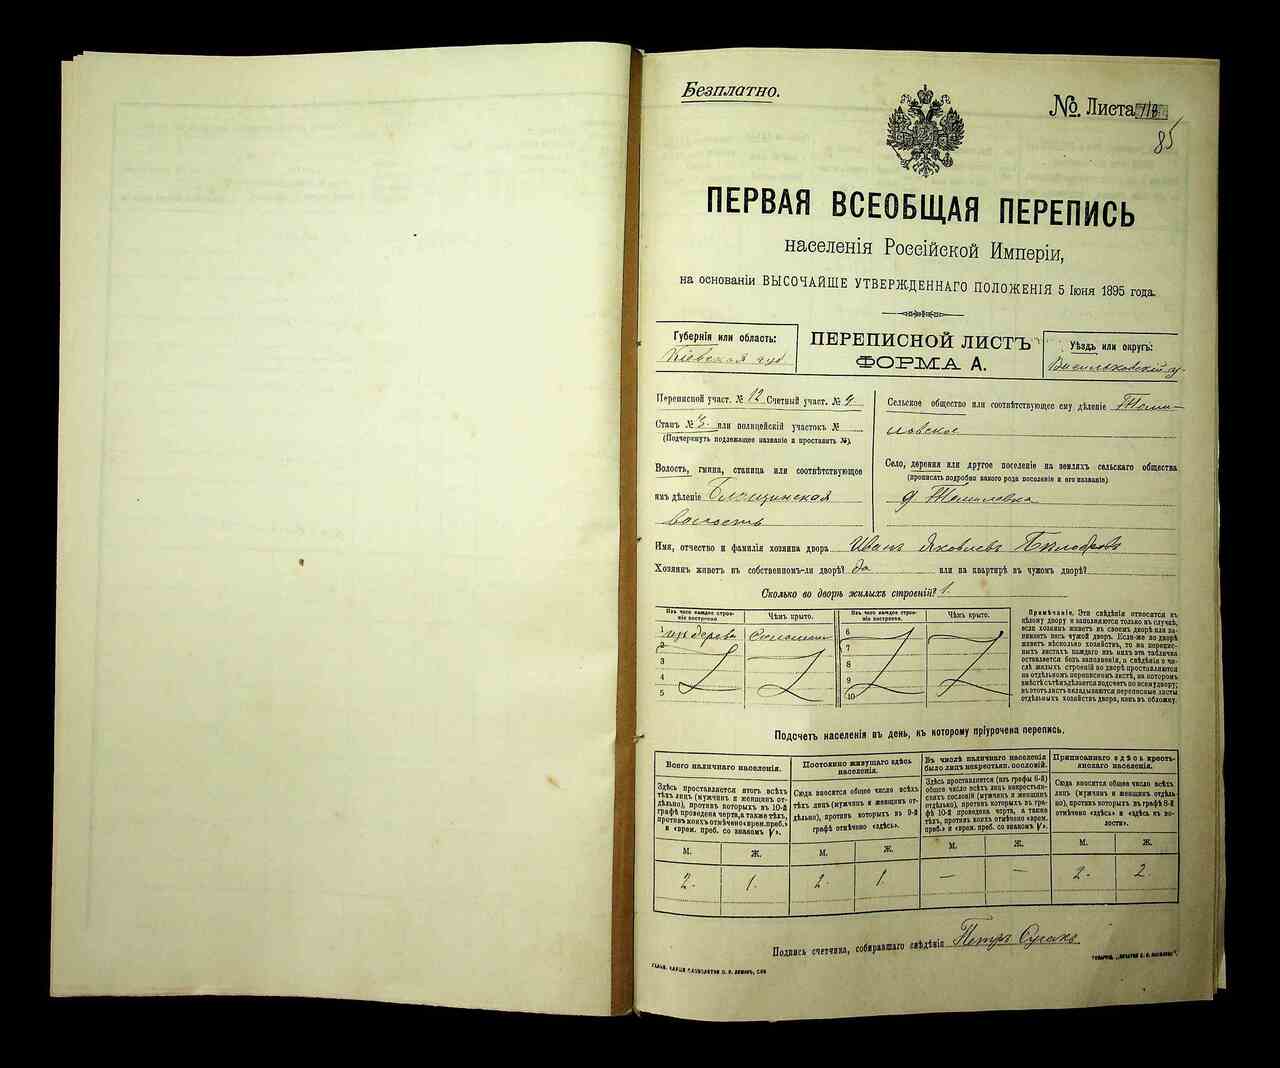 Безплатно.
№ Листа
85
ПЕРВАЯ ВСЕОБЩАЯ ПЕРЕПИСЬ
населенія Россійской Имперіи,
на основаніи ВЫСОЧАЙШЕ УТВЕРЖДЕННАГО ПОЛОЖЕНІЯ 5 Іюня 1895 года.
Губернія или область:
Кіевская губ.
ПЕРЕПИСНОЙ ЛИСТЪ
ФОРМА А.
Уѣздъ или округъ:
Васильковскій у.
Переписной участ. № 12 Счетный участ. № 4
Станъ № 3. или полицейскій участокъ №
(Подчеркнуть подлежащее названіе и проставить №).
Волость, гмина, станица или соотвѣтствующее
имъ дѣленіе Блощинская
волость
Сельское общество или соотвѣтствующее ему дѣленіе Томи-
ловское
Село, деревня или другое поселеніе на земляхъ сельскаго общества
(прописать подробно какого рода поселеніе и его названіе)
д Томиловка
Имя, отчество и фамилія хозяина двора Иванъ Яковлевъ
Хозяинъ живетъ въ собственномъ-ли дворѣ? да или на квартирѣ въ чужомъ дворѣ?
Сколько во дворѣ жилыхъ строеній? 1.
Изъ чего каждое строе-
ніе построено.
Чѣмъ крыто.
Изъ чего каждое строе-
ніе построено.
Чѣмъ крыто.
1 изъ дерева Соломою 6
2 7
3 8
4 9
5 10
Примѣчаніе. Эти свѣдѣнія относятся къ
цѣлому двору и заполняются только въ случаѣ,
если хозяинъ живетъ въ своемъ дворѣ или за-
нимаетъ весь чужой дворъ. Если-же во дворѣ
живетъ нѣсколько хозяйствъ, то на перепис-
ныхъ листахъ каждаго изъ нихъ эта табличка
оставляется безъ заполненія, а свѣдѣнія о чи-
слѣ жилыхъ строеній во дворѣ проставляются
на отдѣльномъ переписномъ листѣ, на которомъ
вмѣстѣ съ тѣмъ дѣлается подсчетъ по всему двору;
въ этотъ листъ вкладываются переписные листы
отдѣльныхъ хозяйствъ двора, какъ въ обложку.
Подсчетъ населенія въ день, къ которому пріурочена перепись.
Всего наличнаго населенія.
Здѣсь проставляется итогъ всѣхъ
тѣхъ лицъ (мужчинъ и женщинъ от-
дѣльно), противъ которыхъ въ 10-й
графѣ проведена черта, а также тѣхъ,
противъ коихъ отмѣчено «врем. преб.»
и «врем. преб. со знакомъ V».
Постоянно живущаго здѣсь
населенія.
Сюда вносится общее число всѣхъ
тѣхъ лицъ (мужчинъ и женщинъ от-
дѣльно), противъ которыхъ въ 9-й
графѣ отмѣчено «здѣсь».
Въ числѣ наличнаго населенія
было лицъ некрестьян. сословій.
Здѣсь проставляется (изъ графы 6-й)
общее число всѣхъ лицъ некрестьян-
скихъ сословій (мужчинъ и женщинъ
отдѣльно), противъ которыхъ въ гра-
фѣ 10-й проведена черта, а также
тѣхъ, противъ коихъ отмѣчено «врем.
преб.» и «врем. преб. со знакомъ V».
Приписаннаго здѣсь кресть-
янскаго населенія.
Сюда вносится общее число всѣхъ
лицъ (мужчинъ и женщинъ отдѣль-
но), противъ которыхъ въ графѣ 8-й
отмѣчено «здѣсь» и «здѣсь къ во-
лости».
М. Ж. М. Ж. М. Ж. М. Ж.
2. 1. 2. 1. — — 2. 2.
Подпись счетчика, собиравшаго свѣдѣнія Петръ